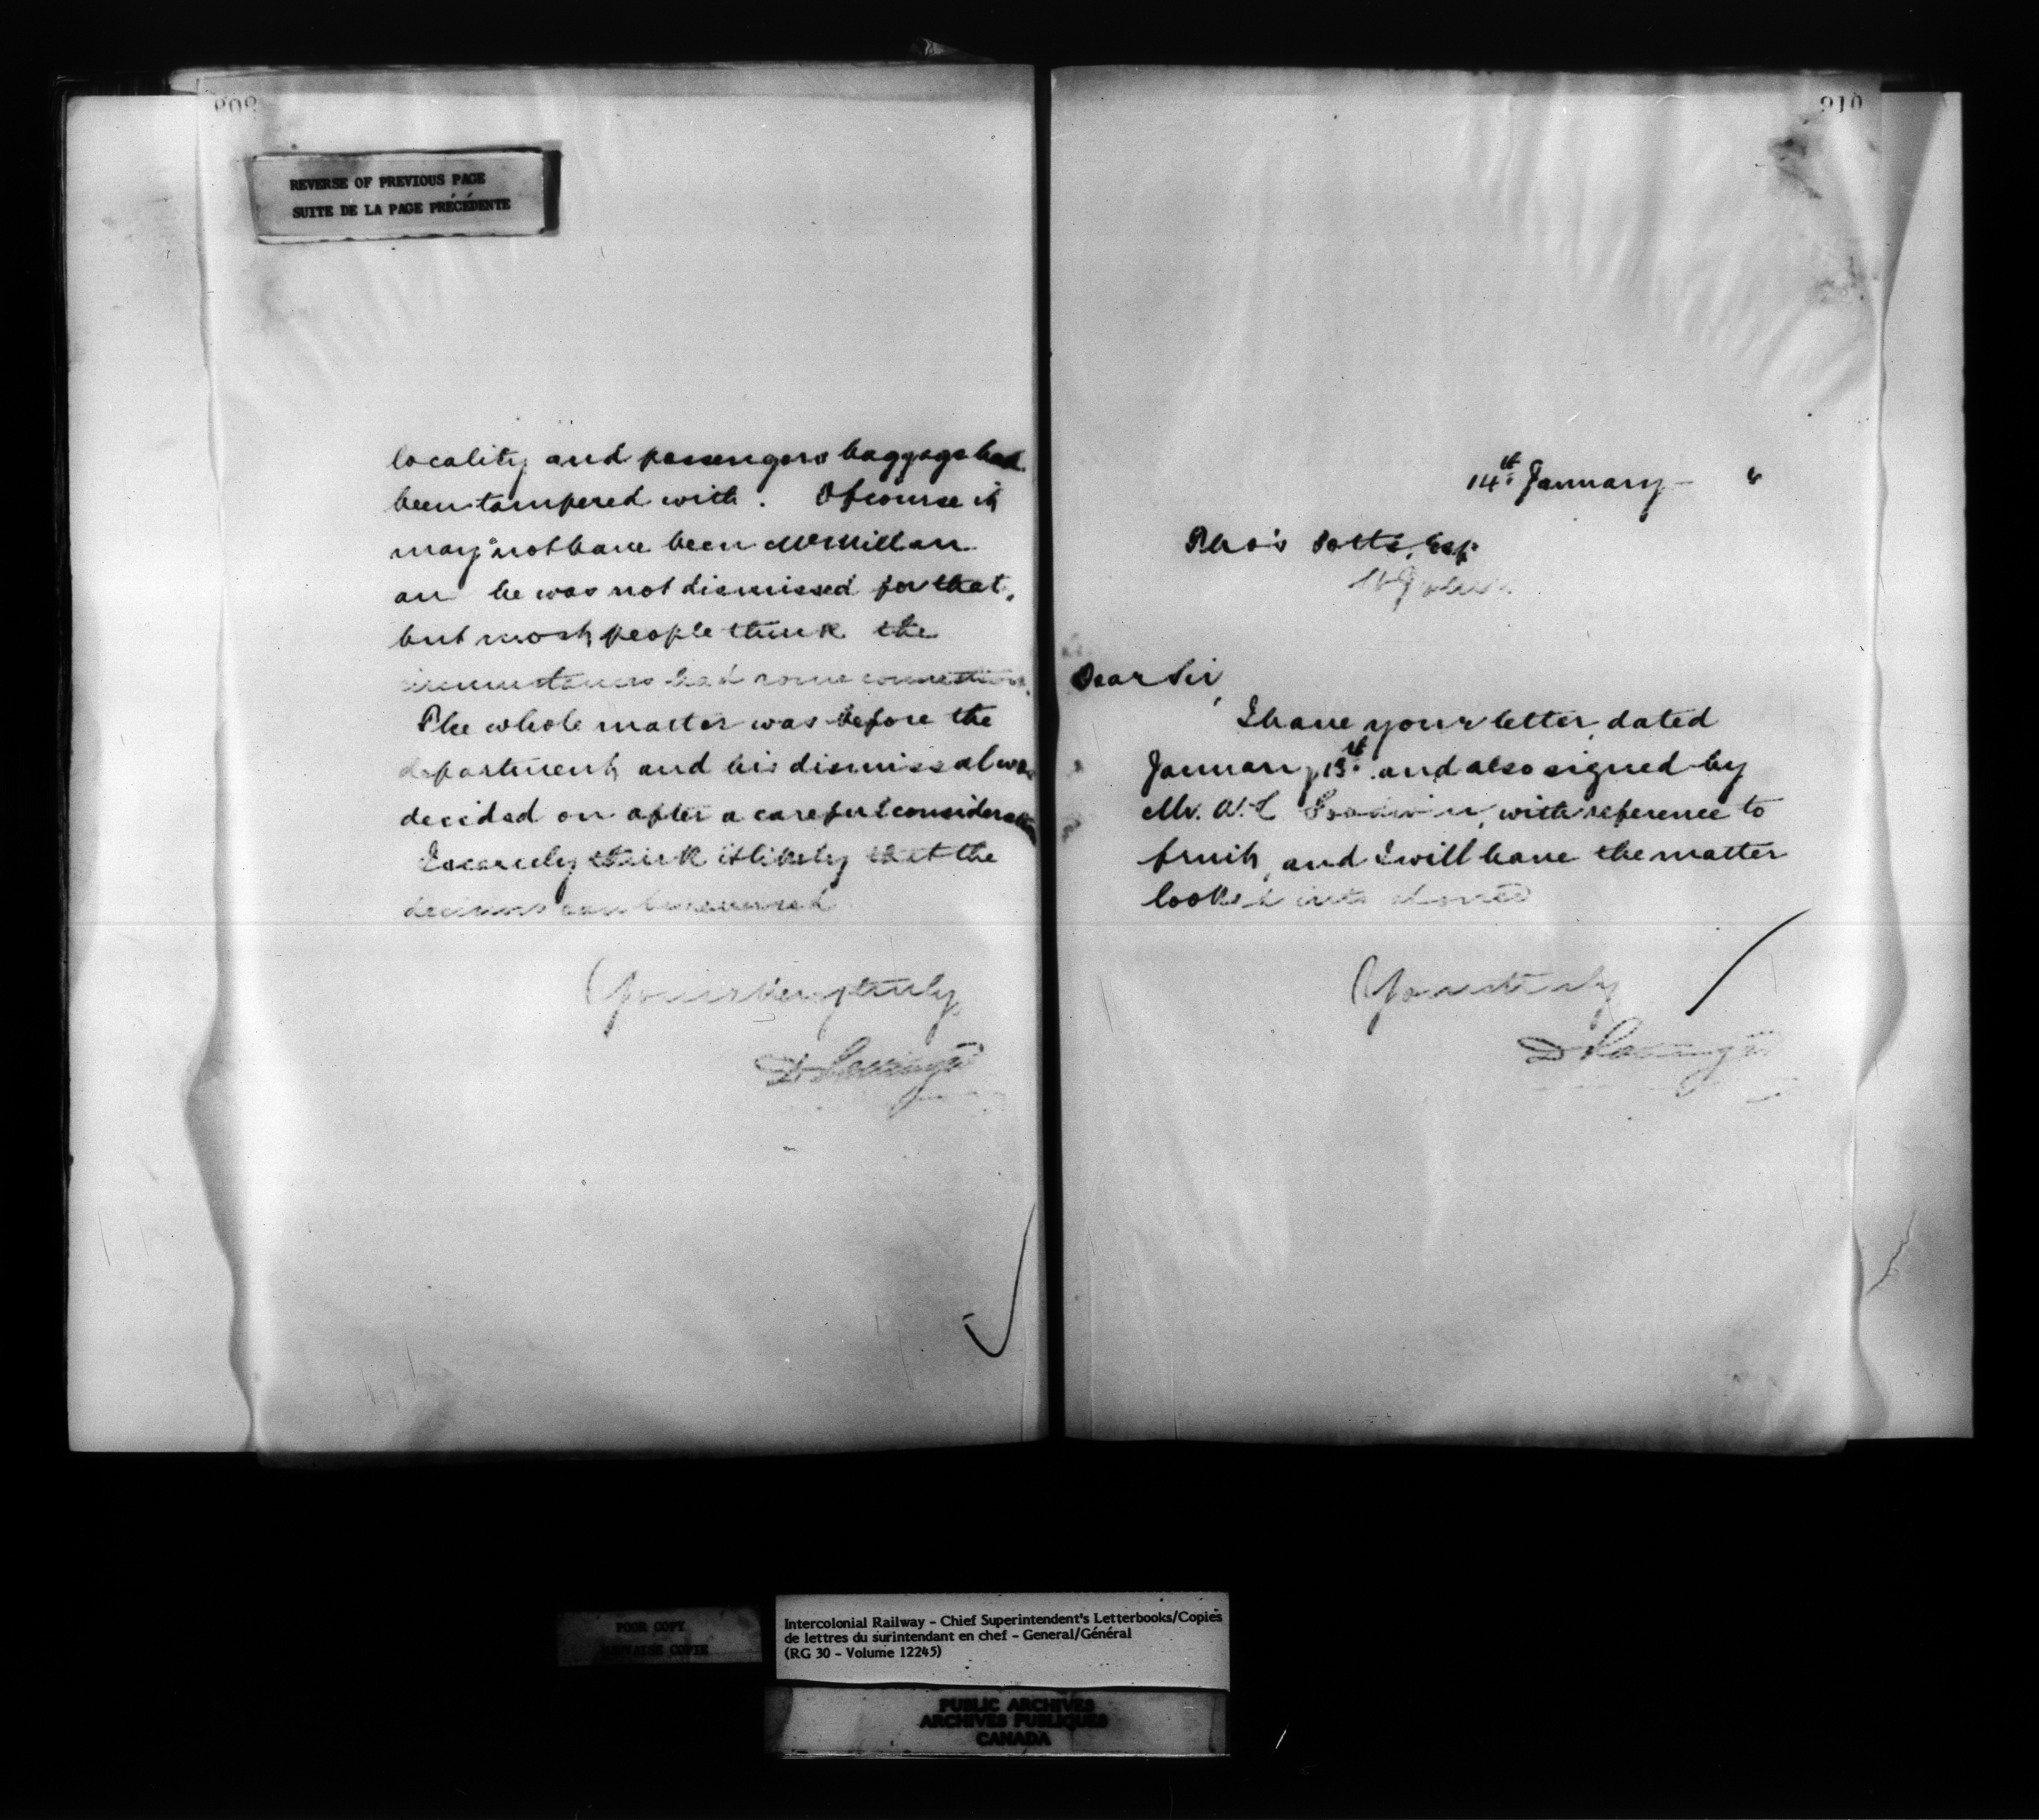 809
REVERSE OF PREVIOUS PAGE
SUITE DE LA PAGE PRÉCÉDENTE
locality and passengers baggage had
been tampered with. Of course it
may not have been McMillan
an he was not dismissed for that,
but most people think the
circumstances had some connection.
The whole matter was before the
department and his dismissal was
decided on after a careful consideration
I scarcely think it likely that the
decision can be reversed
Yours very truly,
D Pottinger
910
14th January - "
Thos Potts, Esq.
St John
Dear Sir,
I have your letter, dated
January 13th and also signed by
Mr. W. L Goodwin, with reference to
fruit, and I will have the matter
looked into at once
Yours truly
D Pottinger
POOR COPY
MAUVAISE COPIE
Intercolonial Railway - Chief Superintendent's Letterbooks/Copies
de lettres du surintendant en chef - General/Général
(RG 30 - Volume 12245)
PUBLIC ARCHIVES
ARCHIVES PUBLIQUES
CANADA